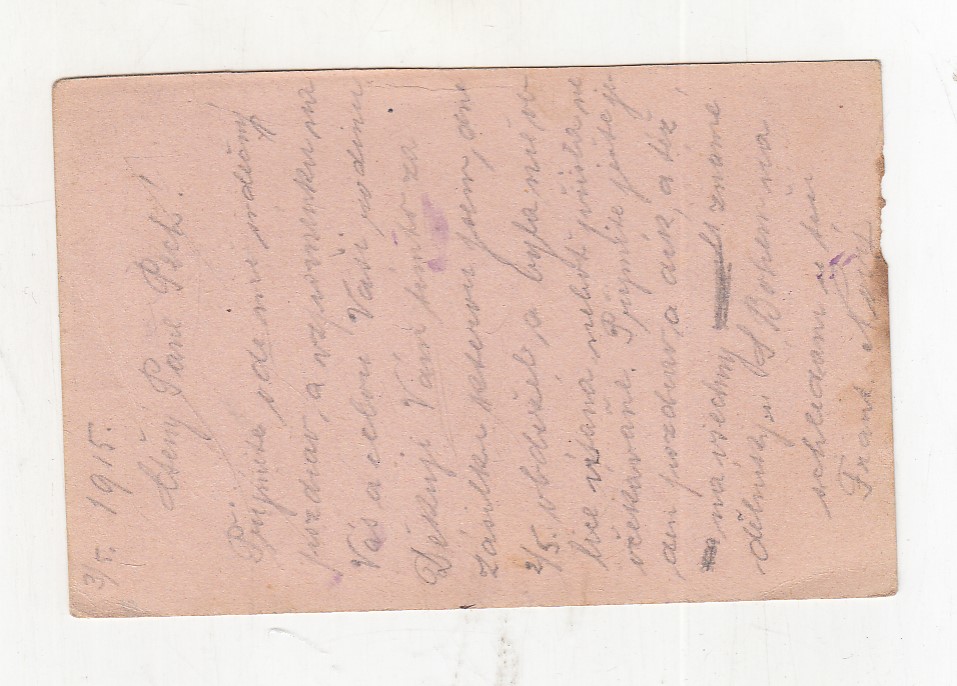 3/5. 1915.
Ctěný Pane Pech!
Přijměte odemne srdečný
pozdrav, a vzpomínku na
Vás a celou Vaši rodinu
Děkuji Vám tímto za
zásilku kterou jsem, dne
2/5. obdržel, a byla
lice vítána neboť přišla ne
očekávaně. Přijměte ještě je
den pozdrav, a dík, a též
na všechny známé
dělníky. S Bohem na
schledanou
Franz